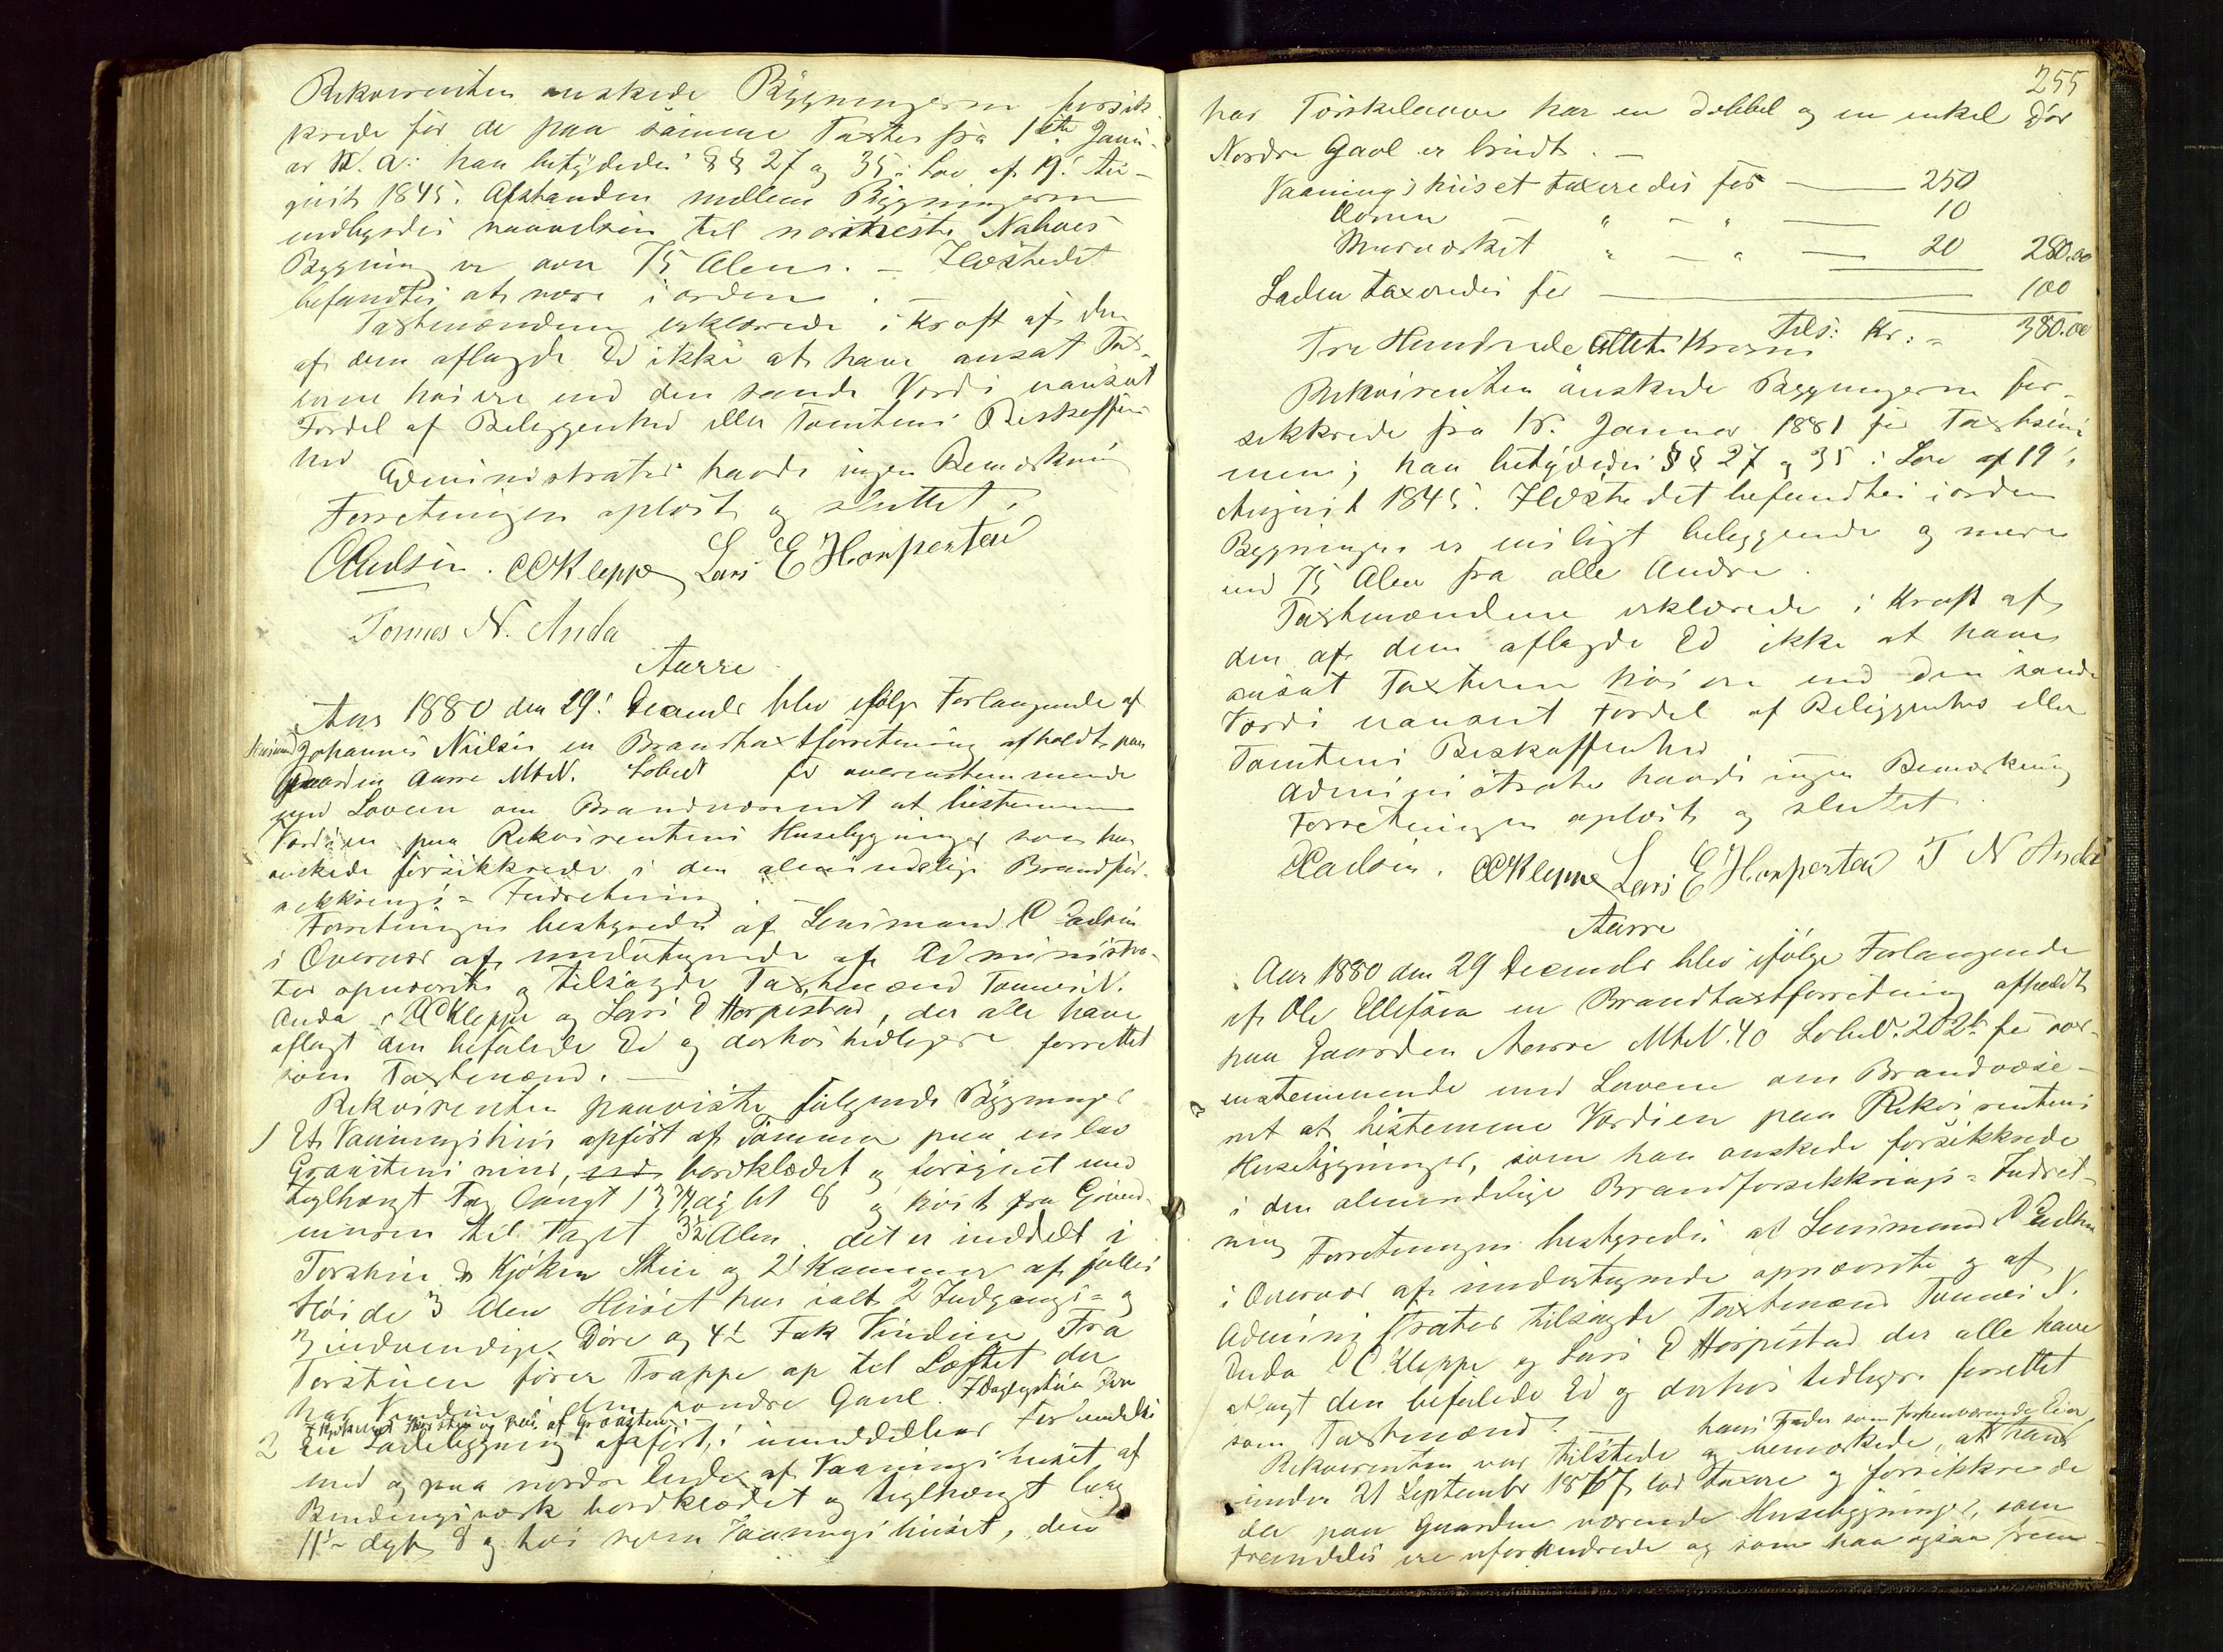 Rekvirenten ønskede Bygningerne forsik-
krede for de paa samme Taxter fra 1ste Janu-
ar n. a: han betydedes §§ 27 og 35 i Lov af 19. Au-
gust 1845. Afstanden mellem Bygningerne
indbyrdes til Naboes
Bygning er 75 Alen. – Ildstedet
befandtes at være i orden. –
Taxtmændene erklærede i Kraft af den
af dem aflagde Ed ikke at have ansat Tax-
terne høiere end den sande Værdi uanseet
Fordel af Beliggenhed eller Tomtens Beskaffen-
hed
Administrator havde ingen Bemærkning
Forretningen oplæst og sluttet.
CPaulsen. OCKleppe Lars E Horpestad
Tønnes N. Anda
Aarre
Aar 1880 den 29. Decembr blev ifølge Forlangende af
Johannes Nielsen en Brandtaxtforretning afholdt paa
Gaarden Aarre MtN. LobeN for overenstemmende
med Loven om Brandvæsenet at bestemme
Værdien paa Rekvirentens Husebygninger som han
ønskede forsikkrede i den almindelige Brandfor-
sikkrings-Indretning
Forretningen bestyredes af Lensmand Paulsen
i Overvær af undertegnede af Administra-
tor opnævnte og tilsagde Taxtmænd Tønnes N.
Anda, OCKleppe og Lars E Horpestad, der alle have
aflagt den befalede Ed og derhos tidligere forrettet
som Taxtmænd. –
Rekvirenten paaviste følgende Bygninger
1 Et Vaaningshus opført af Tømmer paa en lav
Graastens muur, bordklædet og forsynet med
teglhængt Tag langt 13 dybt 8 og høit fra Grund-
muren til Taget 3½ Alen. det er inddelt i
Forstue Kjøken Stue og 2 Kammer af fælles
Høide 3 Alen Huset har ialt 2 Indgangs- og
3 indvendige Døre og 4½ Fak Vinduer. Fra
Forstuen fører Trappe op til Loftet der
har Vindue i den søndre Gavl. I Dagligstua
x Kjøkenet Skorsten og Piibe af Graasten
2 En Ladebygning opført i umiddelbar Forbindelse
med og paa nordre Ende af Vaaningshuset af
Bindingsværk bordklædet og teglhængt lang
11½ dyb 8 og høi som Vaaningshuset, den
255
har Tørskelaave har en dobbel og en enkel Dør
Nordre Gavl er brudt. –
Vaaningshuset taxeredes for — 250
Ovnen " – " — 10
Murværket " – " — 20 280.00
Laden taxeredes for — 100
Tils: Kr: = 380.00
Tre Hundrede Otteti Kroner
Rekvirenten ønskede Bygningerne for-
sikkrede fra 1ste Januar 1881 for Taxtsum-
men; han betydedes §§ 27 og 35 i Lov af 19.
August 1845. Ildstedet befandtes i orden
Bygningen er ensligt beliggende og mere
end 75 Alen fra alle Andre.
Taxtmændene erklærede i Kraft af
den af dem aflagde Ed ikke at have
ansat Taxterne høiere end den sande
Værdi uanseet Fordel af Beliggenhed eller
Tomtens Beskaffenhed
Administrator havde ingen Bemærkning
Forretningen oplæst og sluttet
CPaulsen. OCKleppe Lars E Horpestad T N Anda
Aarre
Aar 1880 den 29 Decembr blev ifølge Forlangende
af Ole Ellefsen en Brandtaxtforretning afholdt
paa Gaarden Aarre MtN. 40 LobeN. 202b for over-
enstemmende med Lovene om Brandvæse-
net at bestemme Værdien paa Rekvirentens
Husebygninger, som han ønskede forsikkrede
i den almindelige Brandforsikkrings-Indret-
ning Forretningen bestyredes af Lensmand Paulsen
i Overvær af undertegnede opnævnte og af
Administrator tilsagde Taxtmænd Tønnes N.
Anda OC Kleppe og Lars E Horpestad der alle have
aflagt den befalede Ed og derhos tidligere forrettet
som Taxtmænd. – hans Fader som forhenværende Eier
Rekvirenten var tilstede og bemærkede, at hans
under 21 Septembr 1867 lod taxere og forsikkre de
der paa Gaarden værende Husebygninger, som
fremdeles ere uforandrede og som han ogsaa frem-